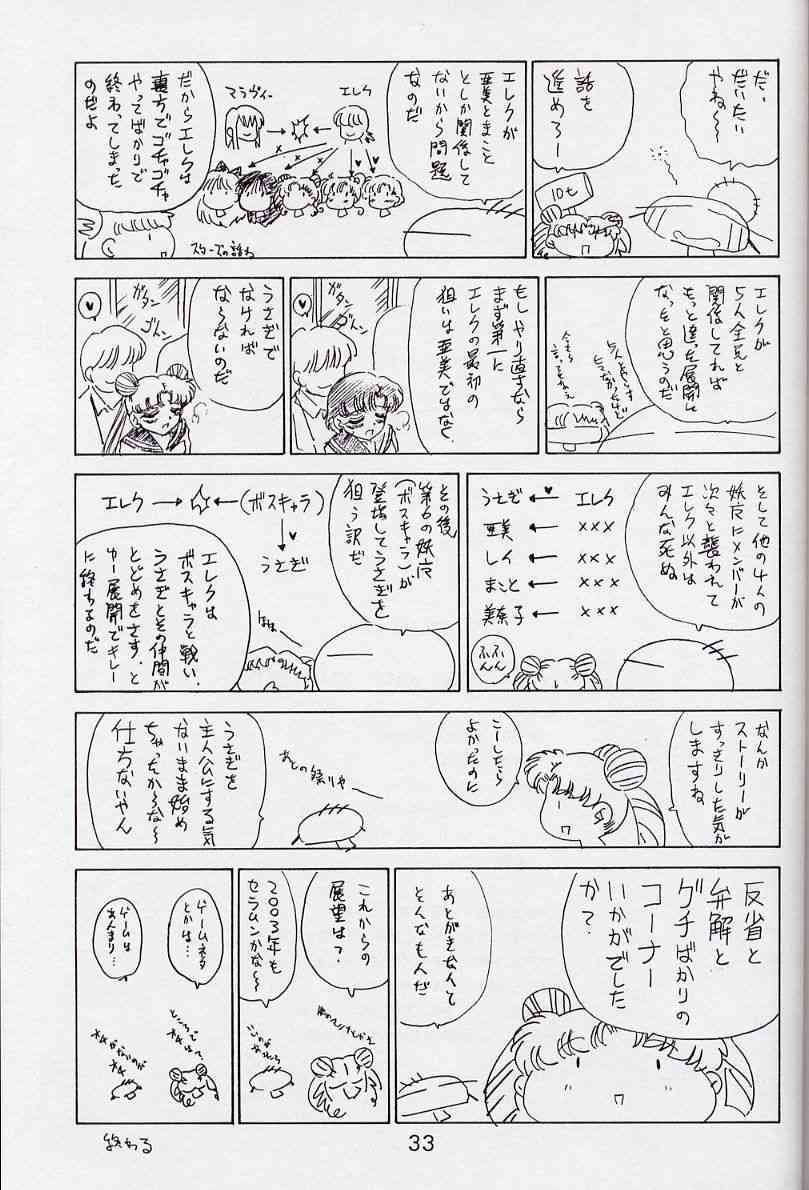 だ、
だいたい
やね〜〜
話を
進めろー
10t
エレクが
亜美とまこと
としか関係して
ないから問題
なのだ
エレク
マラヴィー
スターズの話ね
だからエレクは
裏方でゴチャゴチャ
やってばかりで
終わってしまった
のだよ
エレクが
5人全員と
関係してれば
もっと違った展開に
なったと思うのだ
もしやり直すなら
まず第一に
エレクの最初の
狙いは亜美ではなく、
ガタン
ゴトン
うさぎで
なければ
ならないのだ
ガタン
ゴトン
そして他の4人の
妖魔にメンバーが
次々と襲われて
エレク以外は
みんな死ぬ
うさぎ ← エレク
亜美 ← ×××
レイ ← ×××
まこと ← ×××
美奈子 ← ×××
ふん
ふん
その後
第6の妖魔
(ボスキャラ)が
登場してうさぎを
狙う訳だ
エレク → ← (ボスキャラ)
うさぎ
ほほー
エレクは
ボスキャラと戦い、
うさぎとその仲間が
とどめをさす、と
ゆー展開でキレー
に終わるのだ
なんか
ストーリーが
すっきりした気が
しますね
こーしたら
よかったのに
あとの祭りや
うさぎを
主人公にする気
ないまま始め
ちゃったからな〜
仕方ないやん
反省と
弁解と
グチばかりの
コーナー
いかがでした
か?
あとがきなんて
そんなもんだ
これからの
展望は?
2003年も
セラムンかな〜
ゲームネタ
とかは…
ゲームは
あんまり…
ところで
終わる
33